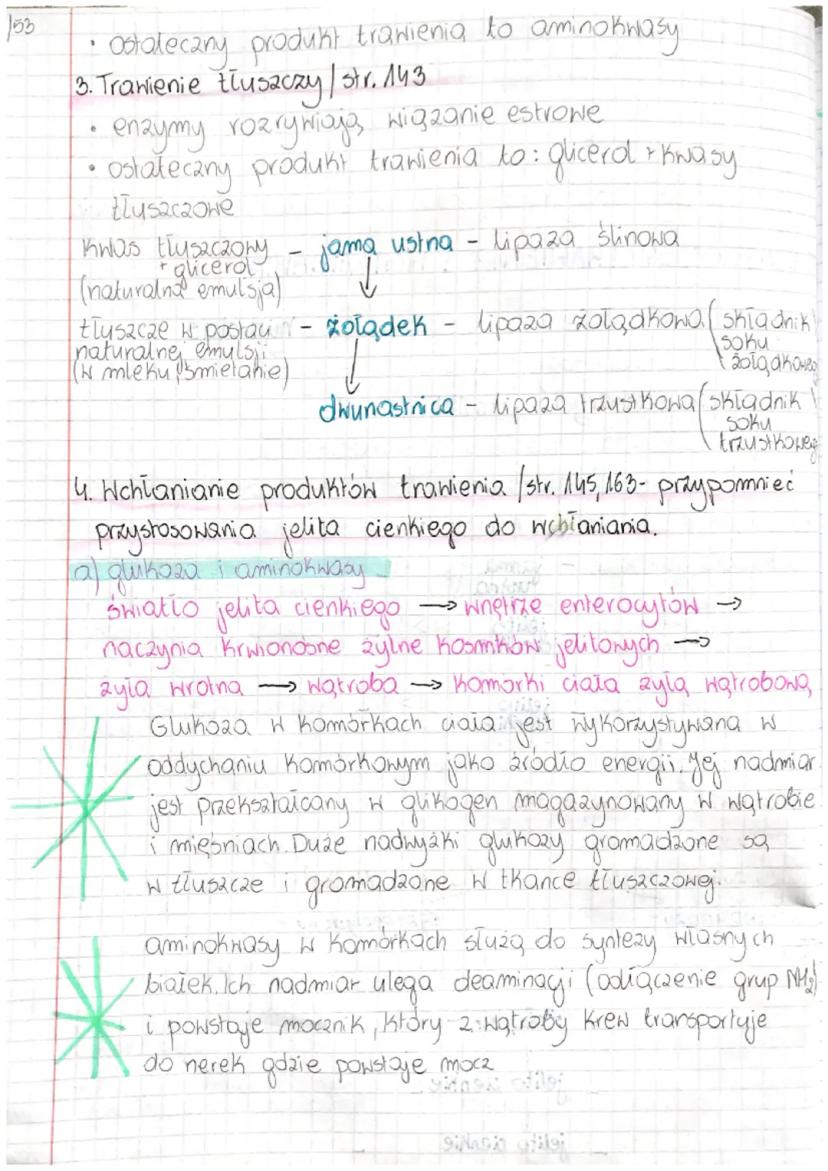 153
• ostateczny produkt trawienia to aminokwasy
3. Trawienie tłuszczy / str. 143
• enzymy rozrywiają wiązanie estrowe
• ostateczny produkt trawienia to: glicerol + kwasy
tłuszczowe
kwas tłuszczowy - jama ustna - lipaza ślinowa
+ glicerol
(naturalna emulsja)
↓
tłuszcze w postaci - żołądek - lipaza żołądkowa (składnik
naturalnej emulsji soku
(w mleku, śmietanie) żołądkowego)
↓
dwunastnica - lipaza trzustkowa (składnik
soku
trzustkowego)
4. Wchłanianie produktów trawienia /str. 145, 163- przypomnieć
przystosowania jelita cienkiego do wchłaniania.
a) glukoza i aminokwasy
światło jelita cienkiego → wnętrze enterocytów →
naczynia krwionośne żylne kosmków jelitowych →
żyła wrotna → wątroba → komórki ciała żyłą wątrobową
Glukoza w komórkach ciała jest wykorzystywana w
oddychaniu komórkowym jako źródło energii. Jej nadmiar
jest przekształcany w glikogen magazynowany w wątrobie
i mięśniach. Duże nadwyżki glukozy gromadzone są
w tłuszcze i gromadzone w tkance tłuszczowej.
aminokwasy w komórkach służą do syntezy własnych
białek. Ich nadmiar ulega deaminacji (odłączenie grup NH₂)
i powstaje mocznik, który z wątroby krew transportuje
do nerek gdzie powstaje mocz